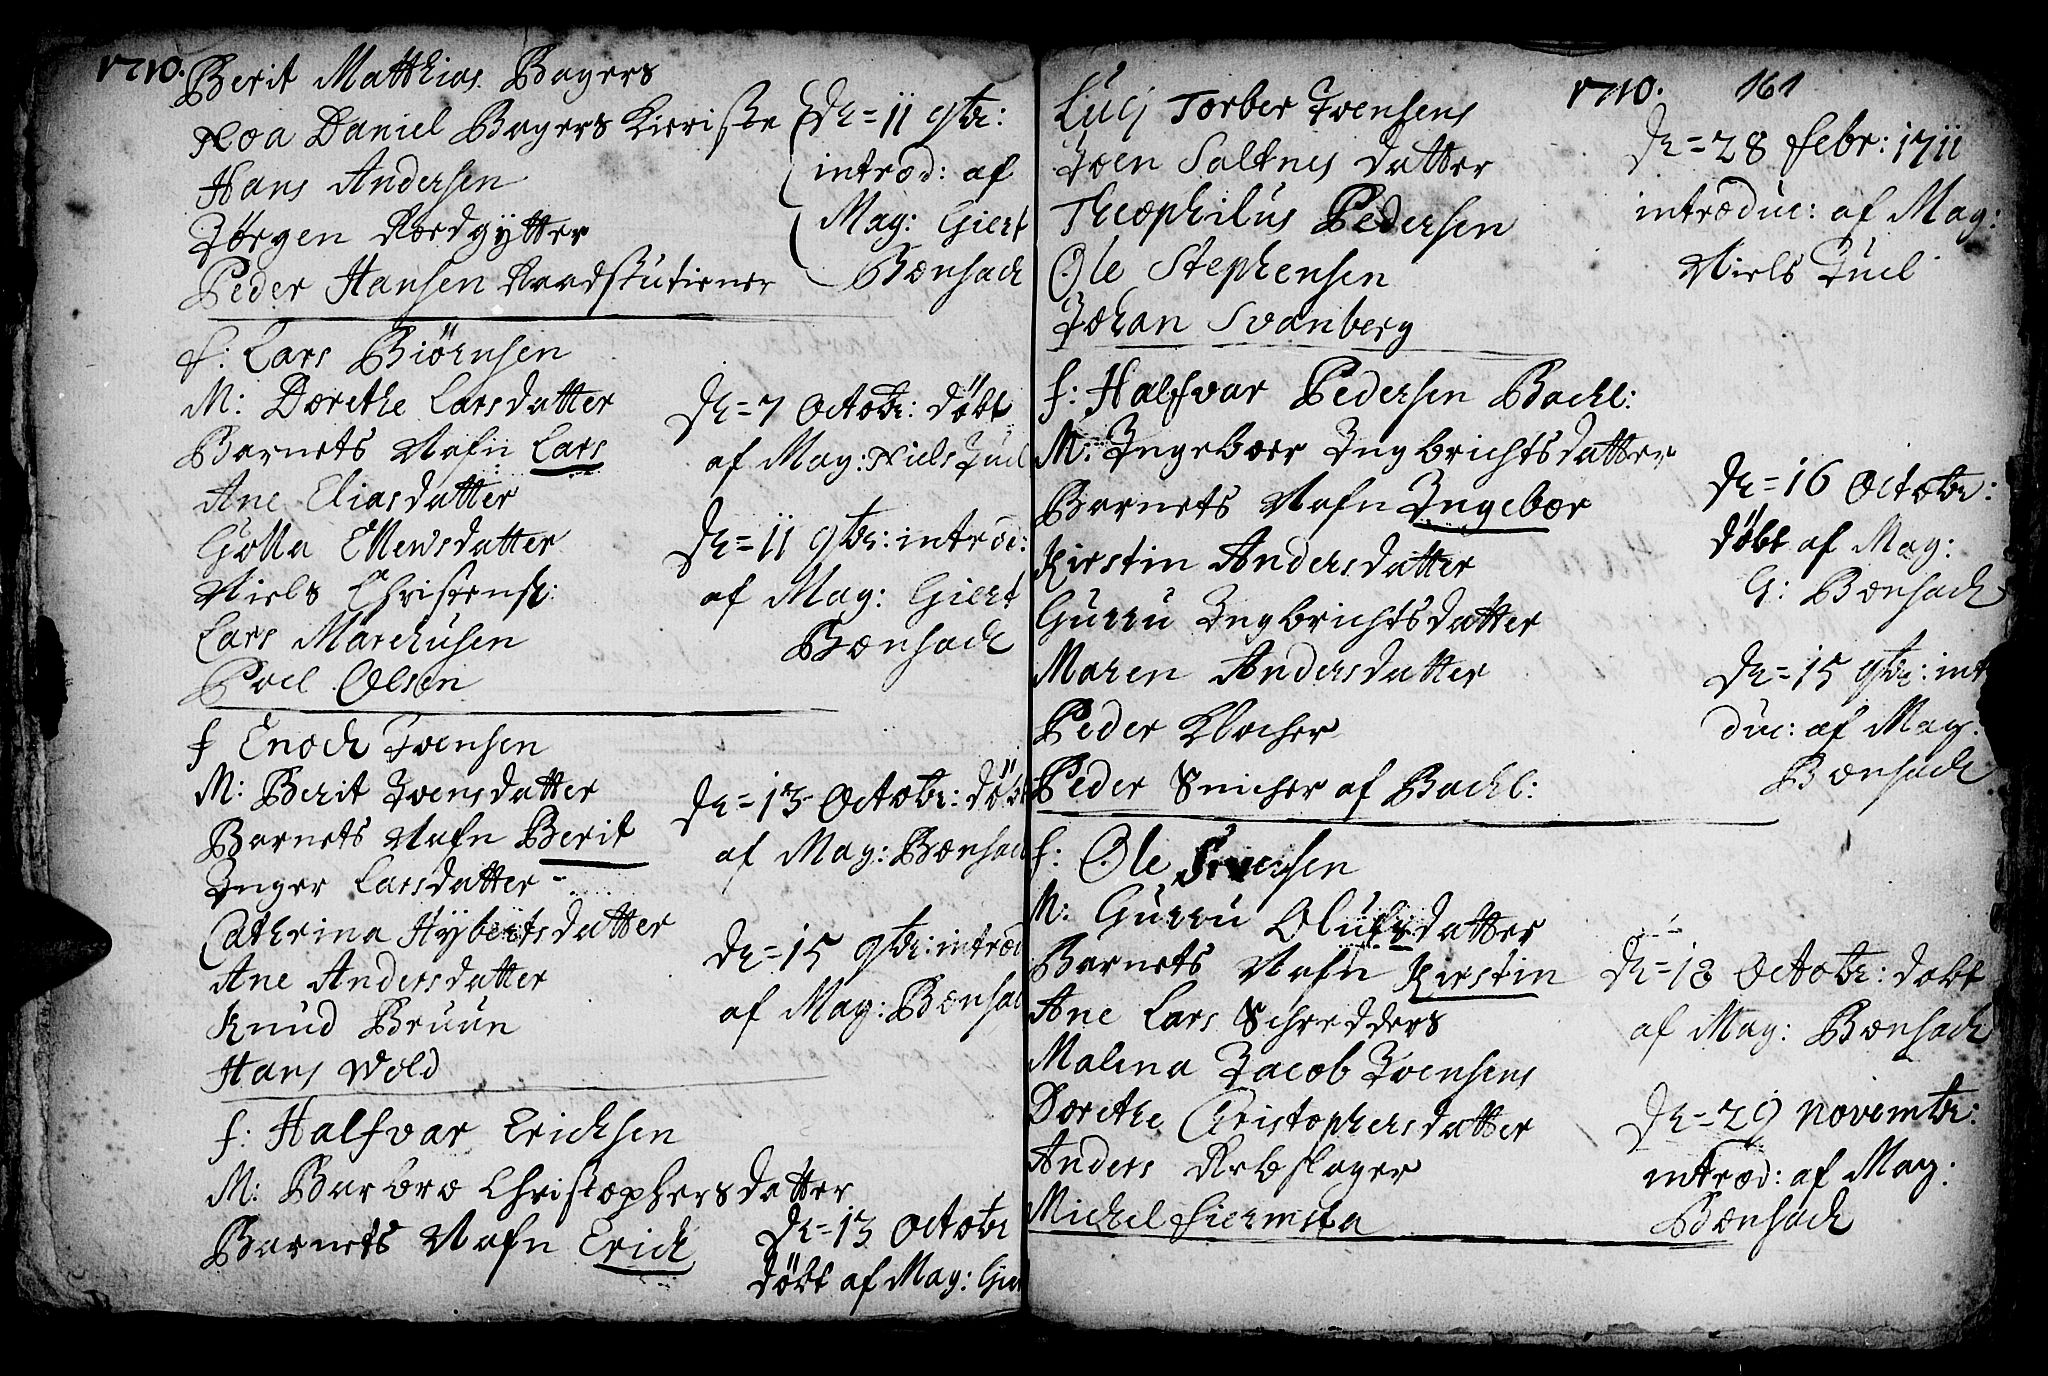 1710.
Berit Matthias Bagers
Noa Daniel Bagers Kieriste
Hans Andersen
Jørgen Roedgytter
Peder Hansen Raadstutiener
D:=11 9br:
introd: af
Mag: Giert
Bonsach
f: Lars Biørnsen
M: Dorethe Larsdatter
Barnets Nafn Lars
Ane Eliasdatter
Golla Ellensdatter
Niels Christens:
Lars Marchusen
Poel Olsen
D:=7 Octobr: døbt
af Mag: Niels Juel
D:=11 9br: introd:
af Mag: Giert
Bonsach
f Enoch Joensen
M: Berit Joensdatter
Barnets Nafn Berit
Inger Larsdatter
Cathrina Hybertsdatter
Ane Andersdatter
Knud Bruun
Hans Wold
D:=13 Octobr: døbt
af Mag: Bonsach
D:=15 9br: introd
af Mag: Bonsach
f: Halfvar Erichsen
M: Barbro Christophersdatter
Barnets Nafn Erich
D:=13 Octobr
døbt af Mag: Giert
1710. 161
Luci Torber Joensens
Joen Saltnes datter
Theophilus Pedersen
Ole Stephensen
Johan Svanberg
D:=28 febr: 1711
introduc: af Mag:
Niels Juel
f: Halfvar Pedersen Bachl:
M: Ingeborr Ingbrichtsdatter
Barnets Nafn Ingebor
Kirstin Andersdatter
Gurru Ingbrichtsdatter
Maren Andersdatter
Peder Klocher
Peder Snicher af Bachl:
D:=16 Octobr:
døbt af Mag:
G: Bonsach
D:=15 9br: int
duc: af Mag:
Bonsach
f: Ole Sivensen
M: Gurru Olufsdatter
Barnets Nafn Kirstin
Ane Lars Schredders
Malena Jacob Joensens
Dorethe Christophersdatter
Anders Rebslager
Michel
D:=18 Octobr: døbt
af Mag: Bonsach
D:=29 novembr:
introd: af Mag:
Bonsach